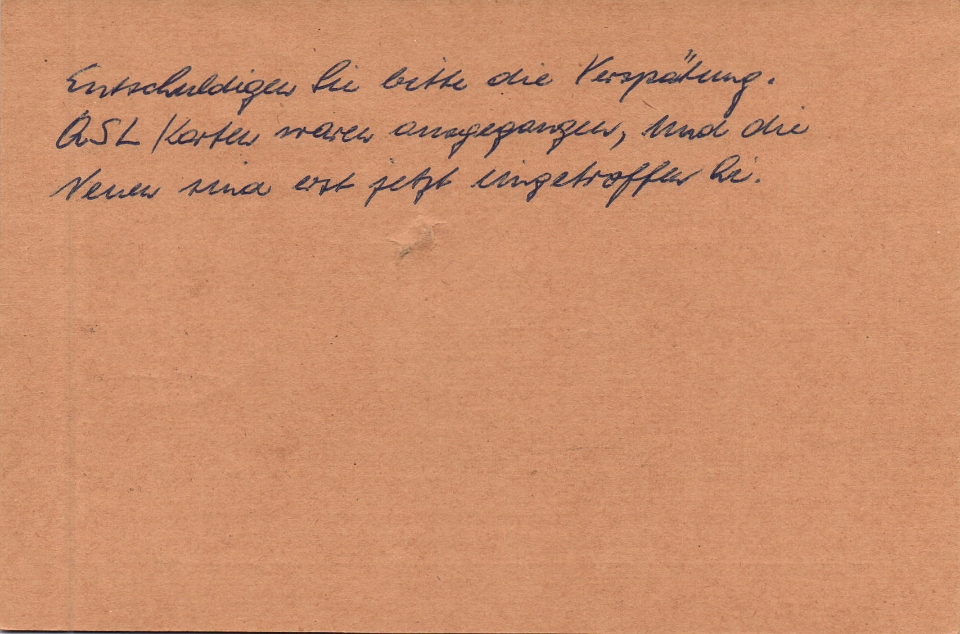 Entschuldigen Sie bitte die Verspätung.
QSL Karten waren ausgegangen, und die
Neuen sind erst jetzt eingetroffen